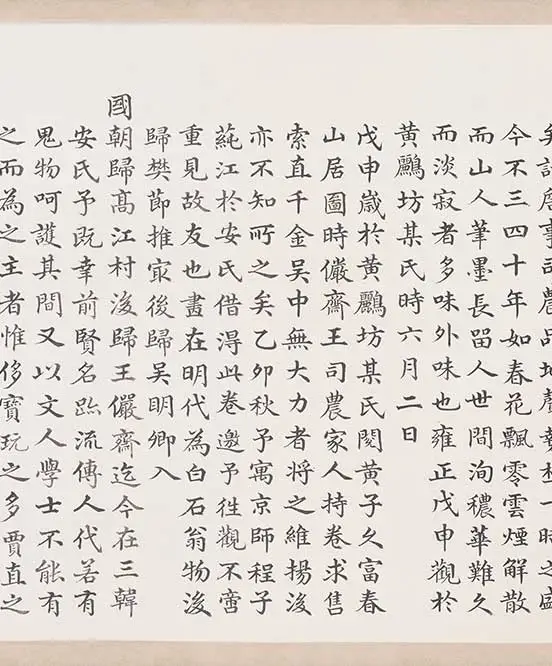 矣計詹事司農品地聲極一時之盛
今不三四十年如春花飄零雲煙解散
而山人筆墨長畱人世間洵穠華難久
而淡寂者多味外味也雍正戊申觀於
黃鸝坊某氏時六月二日
戊申歲於黃鸝坊某氏閱黃子久富春
山居圖時儼齋王司農家人持卷求售
索直千金吳中無大力者將之維揚後
亦不知所之矣乙卯秋予寓京師程子
蒓江於安氏借得此卷邀予往觀不啻
重見故友也畫在明代為白石翁物後
歸樊節推㝡後歸吳明卿入
國朝歸髙江村後歸王儼齋迄今在三韓
安氏予既幸前賢名跡流傳人代若有
鬼物呵護其間又以文人學士不能有
之而為之主者惟侈寶玩之多賈直之